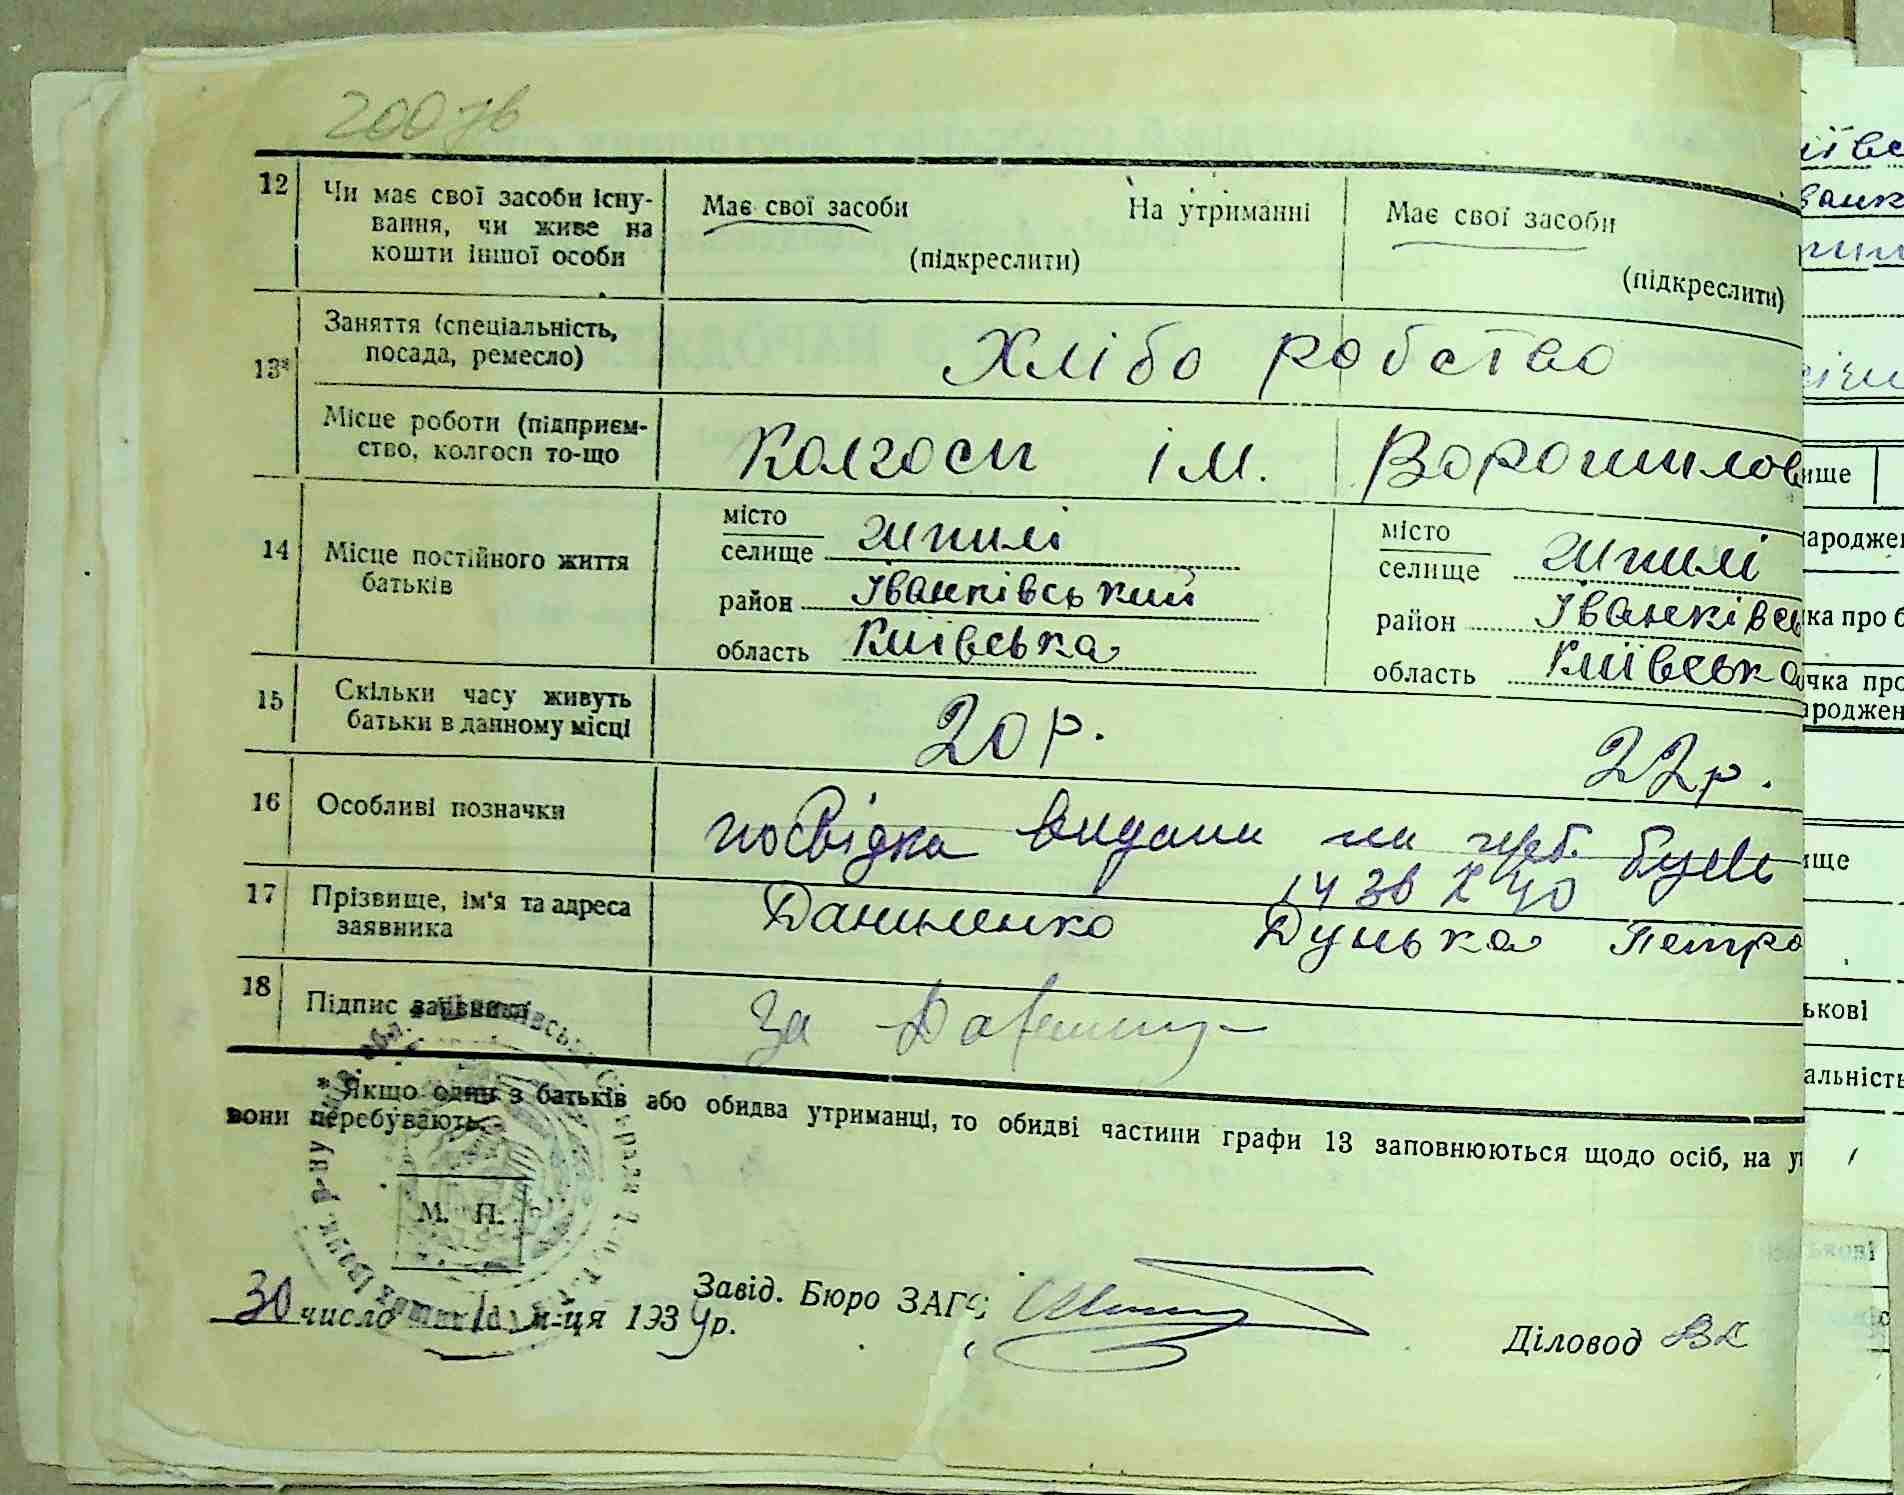 200 зв
12 Чи має свої засоби існу-
вання, чи живе на
кошти іншої особи
Має свої засоби На утриманні
(підкреслити)
Має свої засоби
(підкреслити)
13* Заняття (спеціальність,
посада, ремесло)
Хлібо робство
Місце роботи (підприєм-
ство, колгосп то-що
Колгосп ім. Ворошилов
14 Місце постійного життя
батьків
місто
селище Шпилі
район Іванківський
область Київська
місто
селище Шпилі
район Іванківсь
область Київська
15 Скільки часу живуть
батьки в данному місці
20 р. 22 р.
16 Особливі позначки
посвідка видана на герб.
14 Зв X 40
17 Прізвище, ім'я та адреса
заявника
Даниленко Дунька Петро
18 Підпис заявника
За
* Якщо один з батьків або обидва утриманці, то обидві частини графи 13 заповнюються щодо осіб, на
вони перебувають.
М. П.
30 число м-ця 1939 р.
Завід. Бюро ЗАГС
Діловод
ище
ароджен
ка про б
очка про
ароджен
ище
ькові
альність